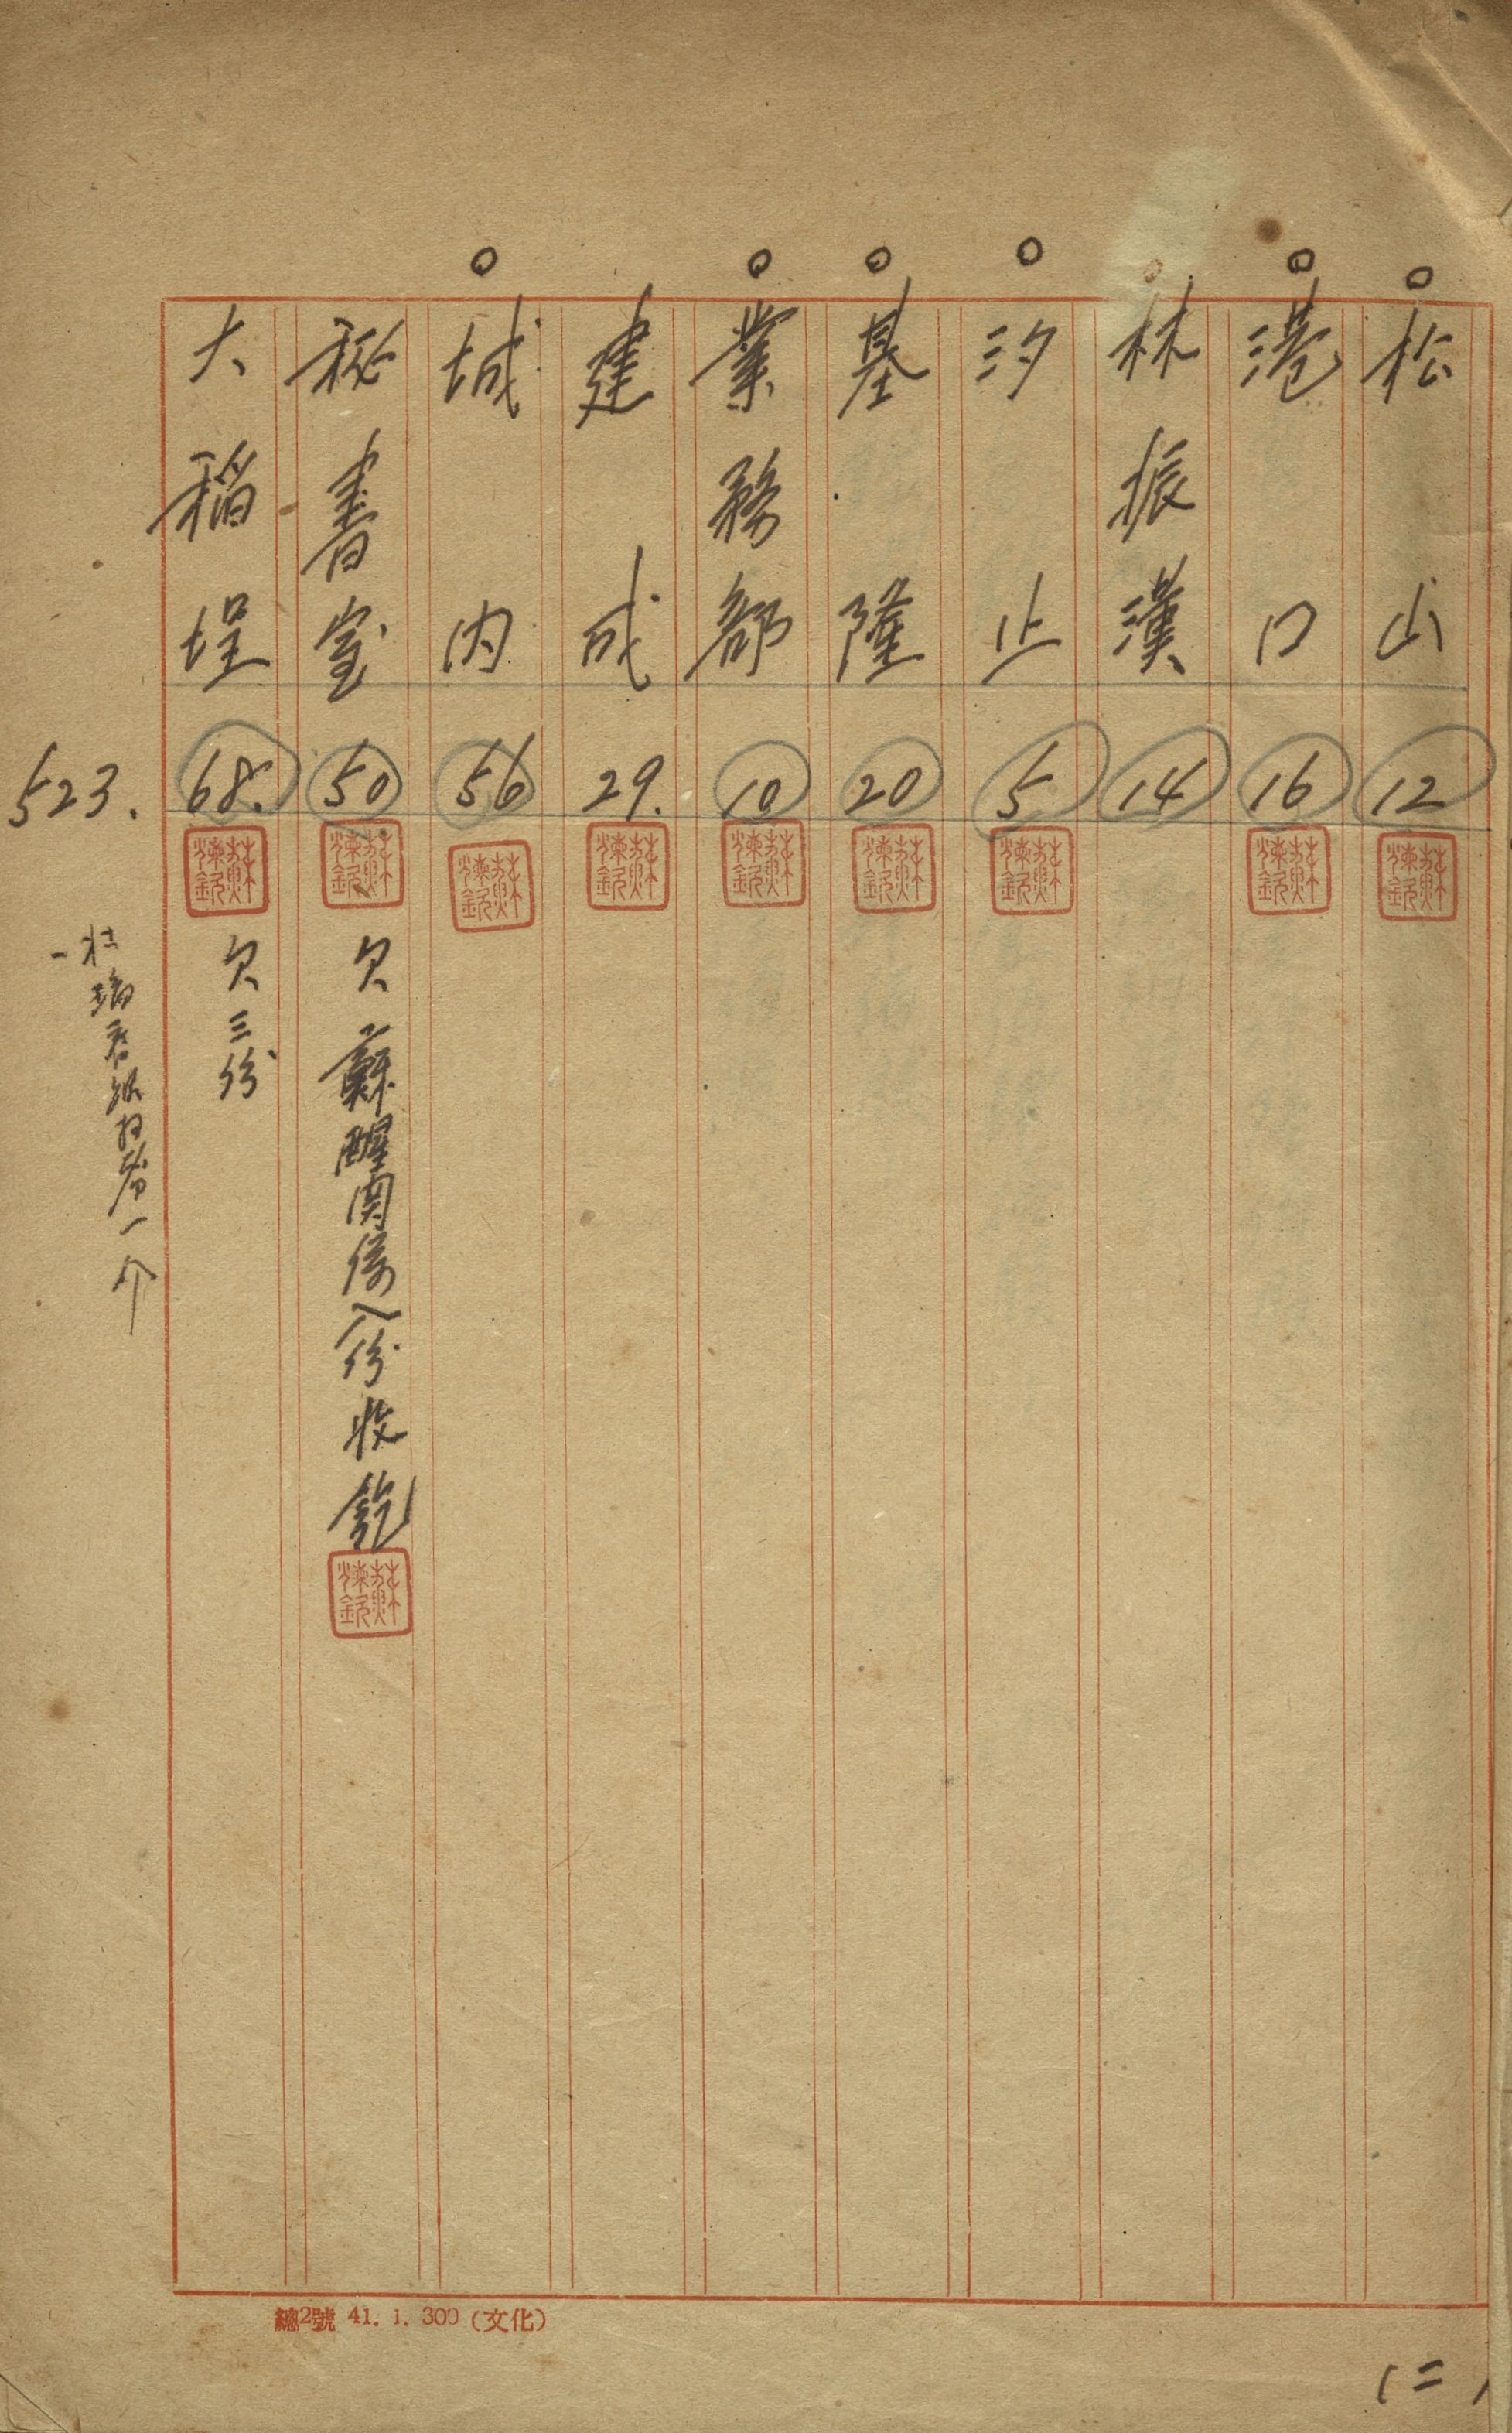 松山 12
港口 16
林振漢 14
汐止 5
基隆 20
業務部 10
建成 29.
城內 56
秘書室 50 欠蘇醒関係入份收訖
大稻埕 68. 欠三份
523.
總2號 41. 1. 300 (文化)
(二)